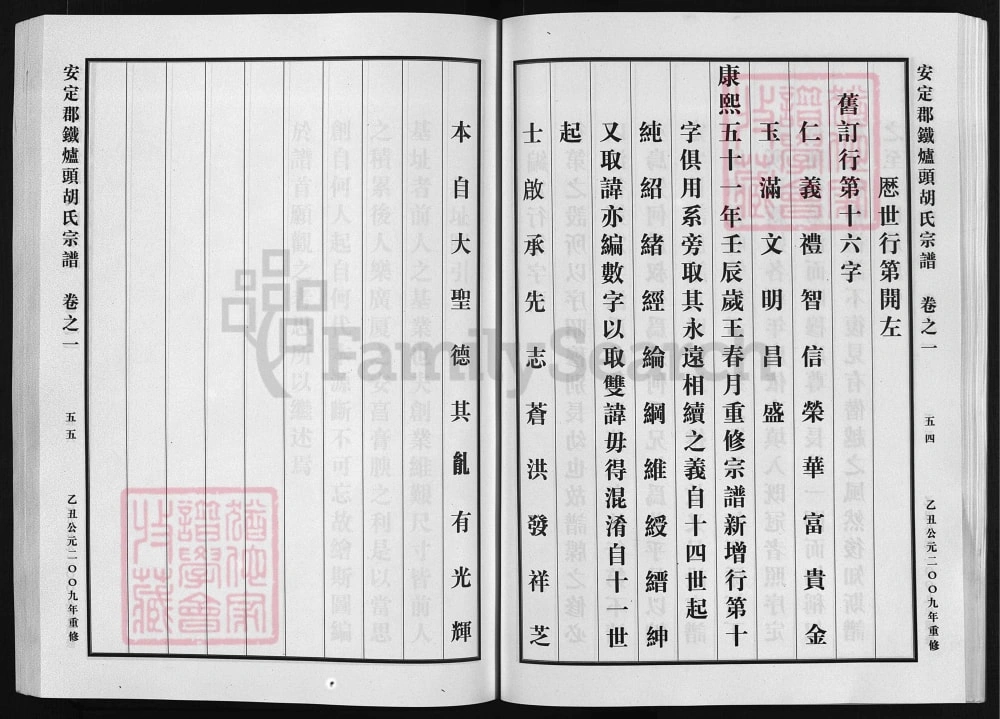 安定郡鐵爐頭胡氏宗譜 卷之一 五四 乙丑公元二〇〇九年重修
厯世行第開左
舊訂行第十六字
仁義禮智信榮華富貴金
玉滿文明昌盛
康熙五十一年壬辰歲王春月重修宗譜新增行第十
字俱用系旁取其永遠相續之義自十四世起
純紹緒經綸綱維綬縉紳
又取諱亦編數字以取雙諱毋得混淆自十一世
起
士啟承先志蒼洪發祥芝
本自大聖德其亂有光輝
安定郡鐵爐頭胡氏宗譜 卷之一 五五 乙丑公元二〇〇九年重修
FamilySearch